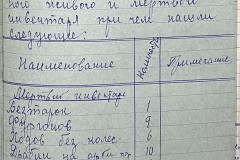 ного живого и мертвого
инвентаря при чем нашли
следующее:
Наименование Количество Примечание
Мертвый инвентарь
Безтарок 1
Фургонов 9
Ходов без колес 6
на 10